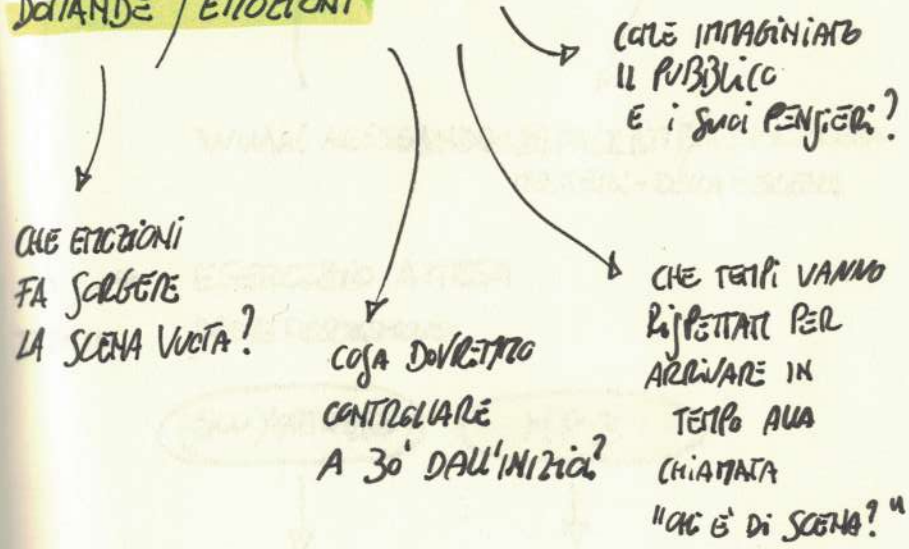 DOMANDE / EMOZIONI
COME IMMAGINIAMO
IL PUBBLICO
E I SUOI PENSIERI?
CHE EMOZIONI
FA SORGERE
LA SCENA VUOTA?
COSA DOVREMMO
CONTROLLARE
A 30' DALL'INIZIO?
CHE TEMPI VANNO
RISPETTATI PER
ARRIVARE IN
TEMPO ALLA
CHIAMATA
"CHI E' DI SCENA?"